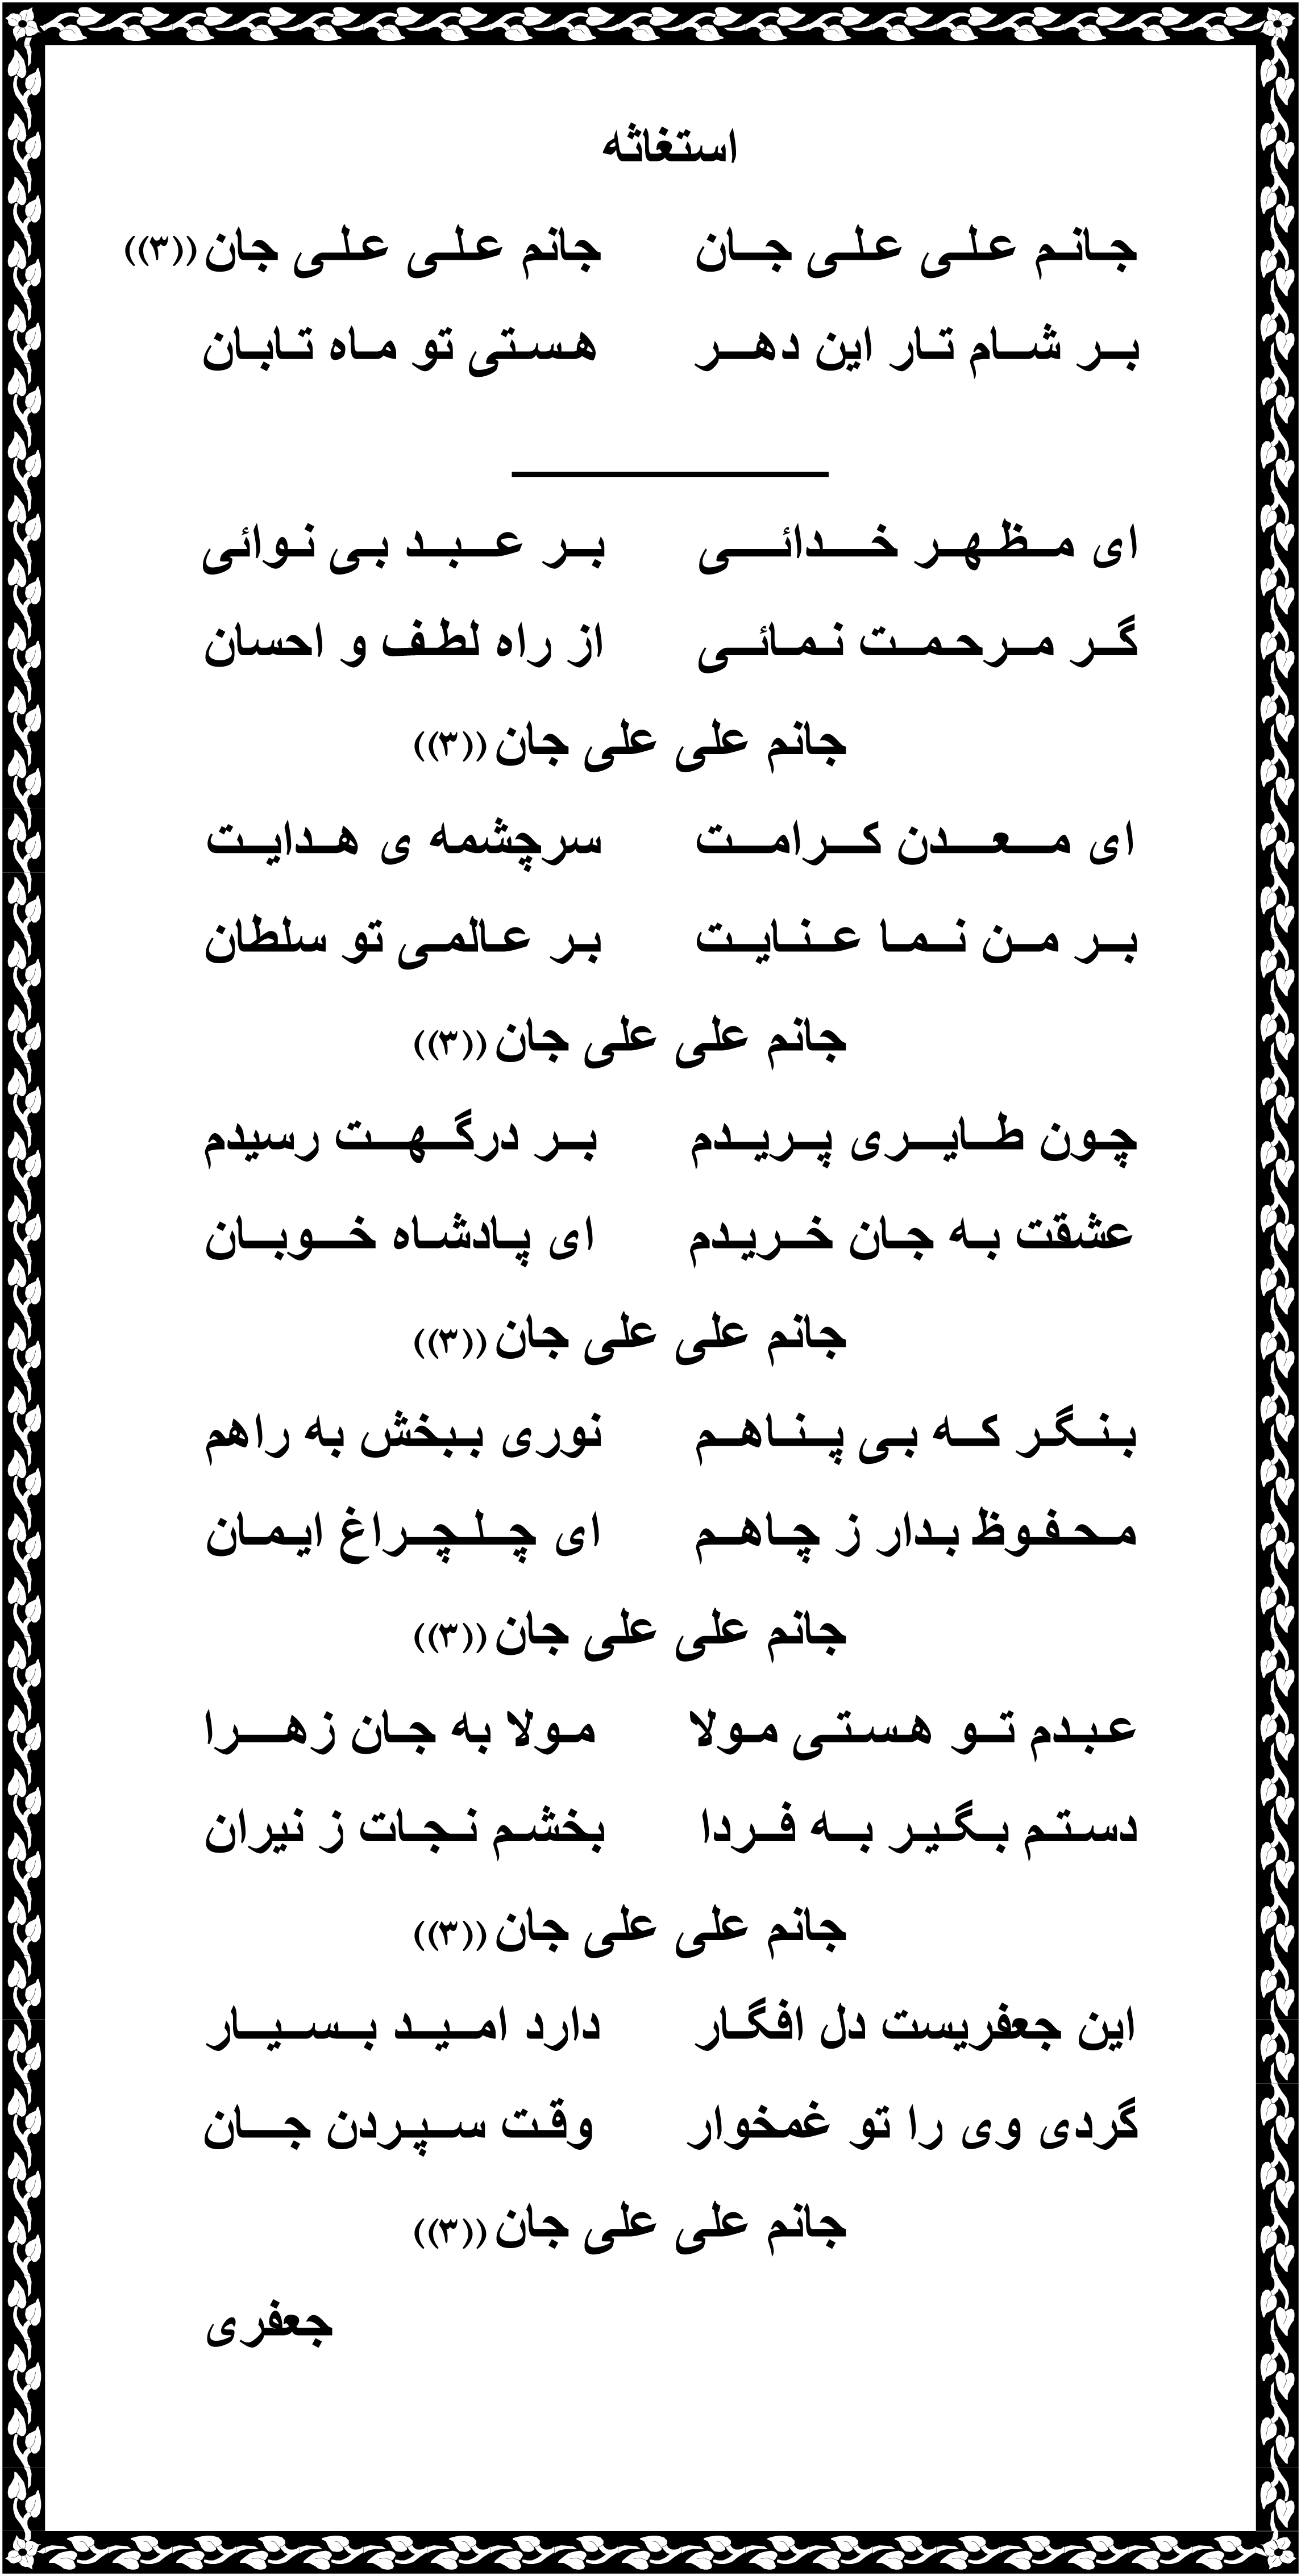 استغاثه
جانم علی علی جان جانم علی علی جان ((۳))
بر شام تار این دهر هستی تو ماه تابان
ای مظهر خدائی بر عبد بی نوائی
گر مرحمت نمائی از راه لطف و احسان
جانم علی علی جان ((۳))
ای معدن کرامت سرچشمه ی هدایت
بر من نما عنایت بر عالمی تو سلطان
جانم علی علی جان ((۳))
چون طایری پریدم بر درگهت رسیدم
عشقت به جان خریدم ای پادشاه خوبان
جانم علی علی جان ((۳))
بنگر که بی پناهم نوری ببخش به راهم
محفوظ بدار ز چاهم ای چلچراغ ایمان
جانم علی علی جان ((۳))
عبدم تو هستی مولا مولا به جان زهرا
دستم بگیر به فردا بخشم نجات ز نیران
جانم علی علی جان ((۳))
این جعفریست دل افگار دارد امید بسیار
گردی وی را تو غمخوار وقت سپردن جان
جانم علی علی جان ((۳))
جعفری